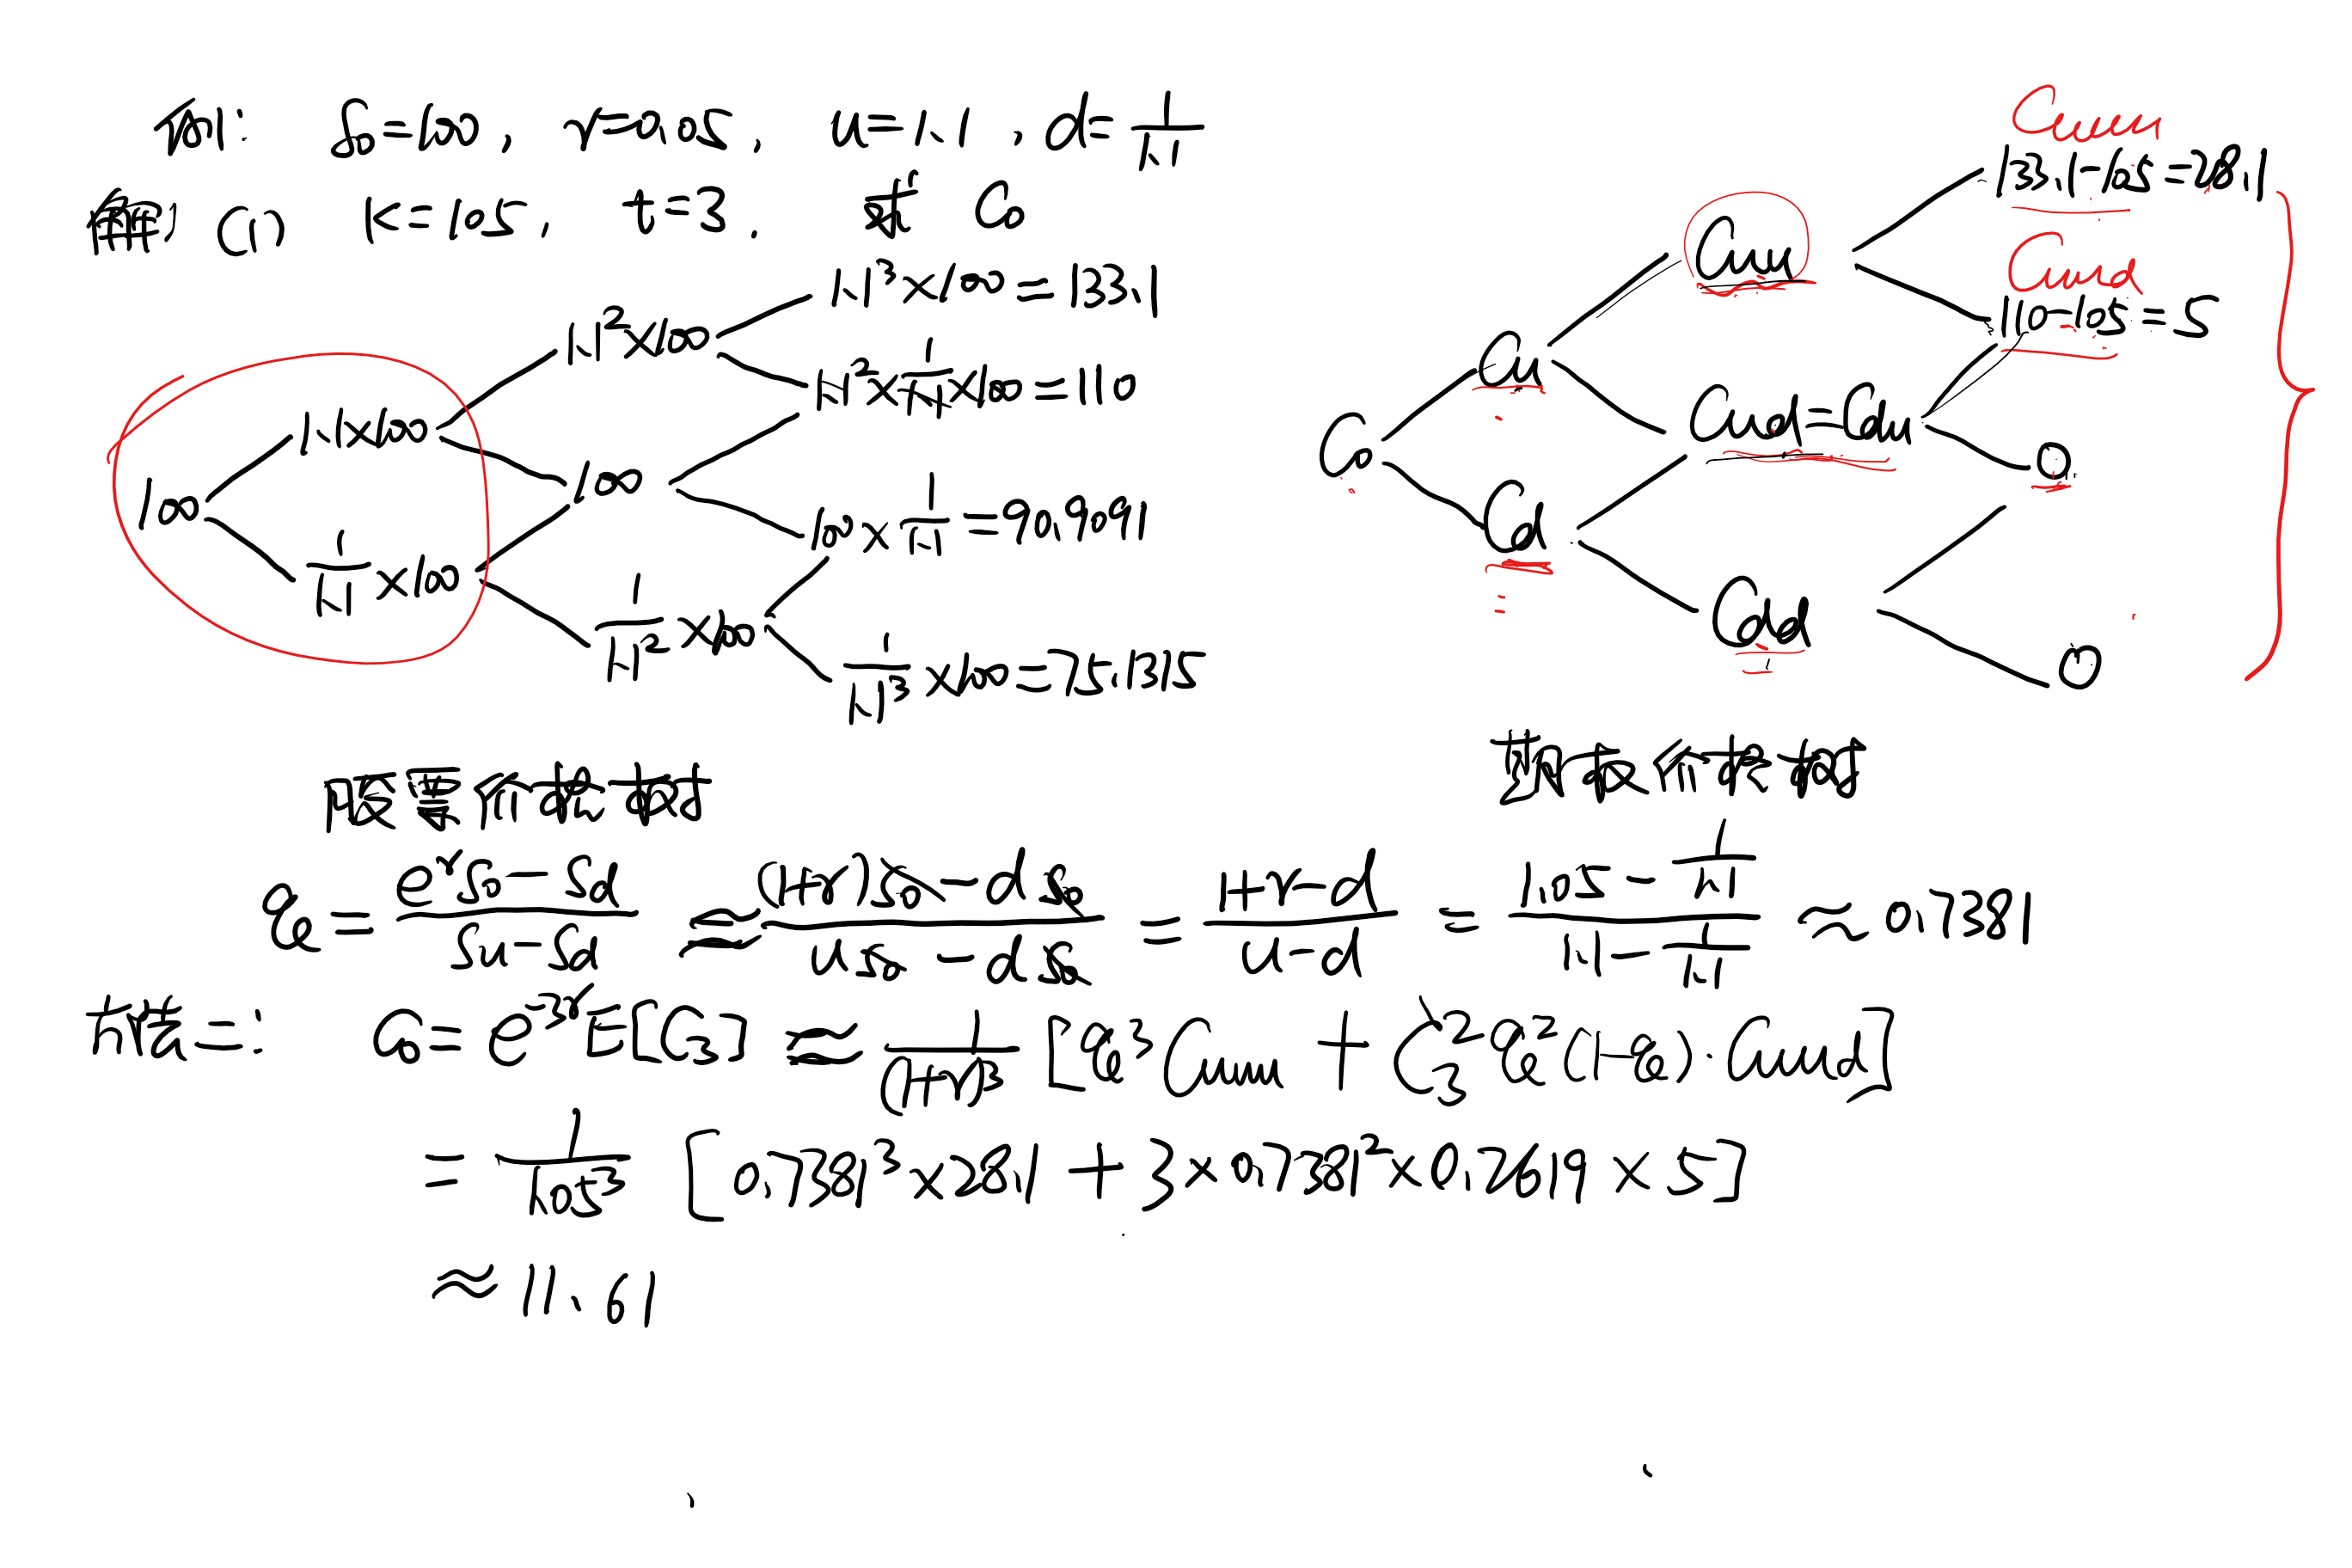 例: S₀=100, r=0.05, u=1.1, d=1/1.1
解: (1) K=105, t=3, 求 C₀
100
1.1×100
1/1.1 ×100
1.1²×100
100
1/1.1² ×100
1.1³×100=133.1
1.1²×1/1.1×100=110
100×1/1.1=90.9091
1/1.1³×100=75.1315
股票价格树
C₀
Cu
Cd
Cuu
Cud=Cdu
Cdd
Cuuu
133.1-105=28.1
Cuud
110-105=5
0
0
期权价格树
q = (eʳS₀-Sd)/(Su-Sd) ≅ ((1+r)S₀-dS₀)/(uS₀-dS₀) = (1+r-d)/(u-d) = (1.05-1/1.1)/(1.1-1/1.1) ≈ 0.7381
方法二: C₀=e⁻³ʳE[C₃] ≅ 1/(1+r)³ [q³Cuuu + C₃²q²(1-q)·Cuud]
= 1/1.05³ [0.7381³×28.1 + 3×0.7381²×0.2619×5]
≈ 11.61